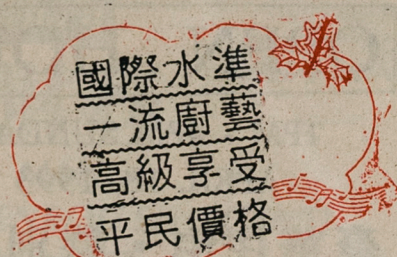 國際水準
一流廚藝
高級享受
平民價格